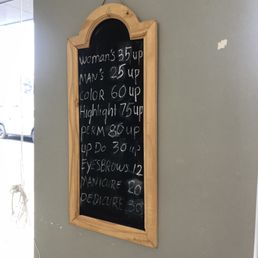 woman's 35 up
MAN's 25 up
COLOR 60 up
Highlight 75 up
PERM 80 up
UP DO 30 up
EYESBROWS 12
MANICURE 20
PEDICURE 30